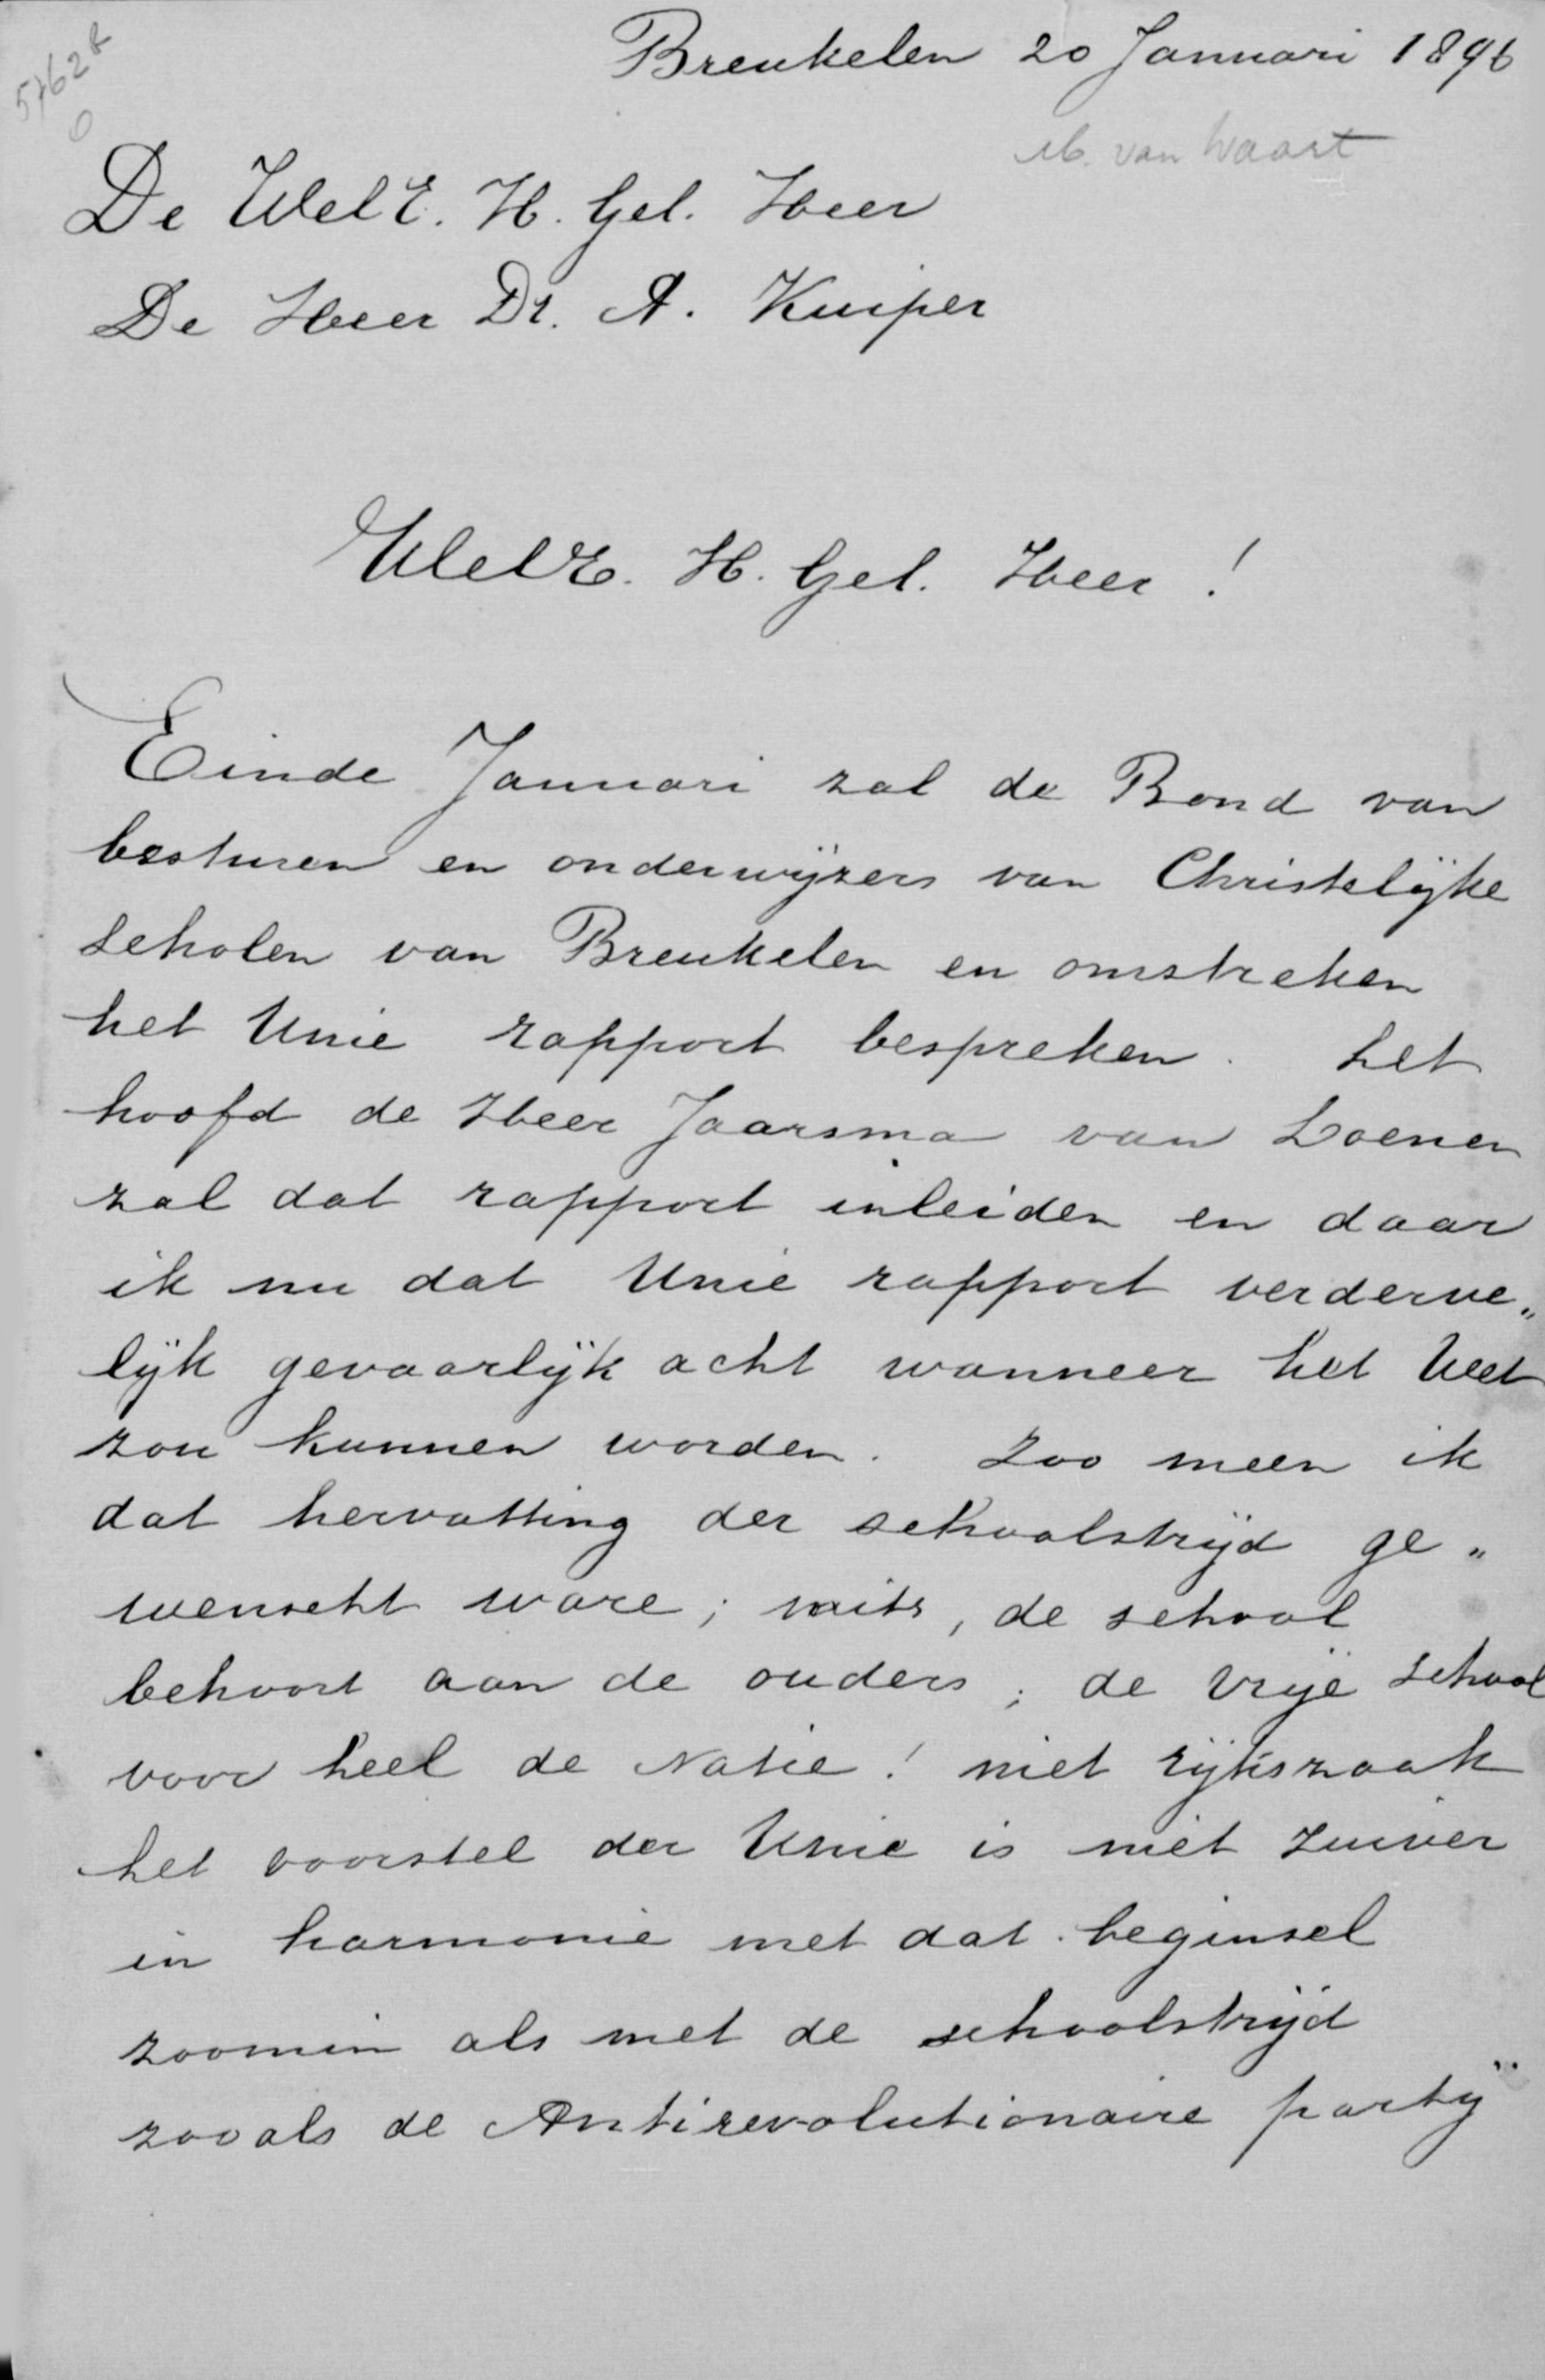 Breukelen 20 Januari 1896
M. van Waart
De WelE. H. Gel. Heer
De Heer Dr. A. Kuiper
WelE. H. Gel. Heer !
Einde Januari zal de Bond van
besturen en onderwijzers van Christelijke
scholen van Breukelen en omstreken
het Unie rapport bespreken. het
hoofd de Heer Jaarsma van Loenen
zal dat rapport inleiden en daar
ik nu dat Unie rapport verderve„
lijk gevaarlijk acht wanneer het Wet
zou kunnen worden. Zoo meen ik
dat hervatting der schoolstrijd ge„
wenscht ware; mits, de school
behoort aan de ouders; de Vrije school
voor heel de Natie! niet rijkszaak
het voorstel der Unie is niet zuiver
in harmonie met dat beginsel
zoomin als met de schoolstrijd
zooals de Antirevolutionaire partij